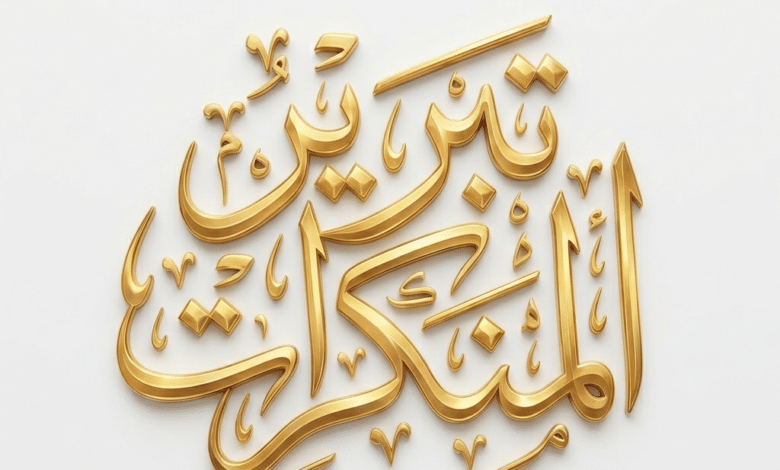 تبرير
المنكرات